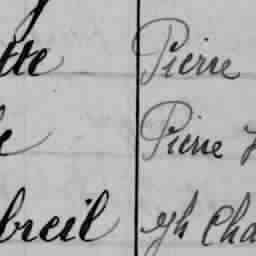 tte Pierre
e Pierre
breil eph Cha